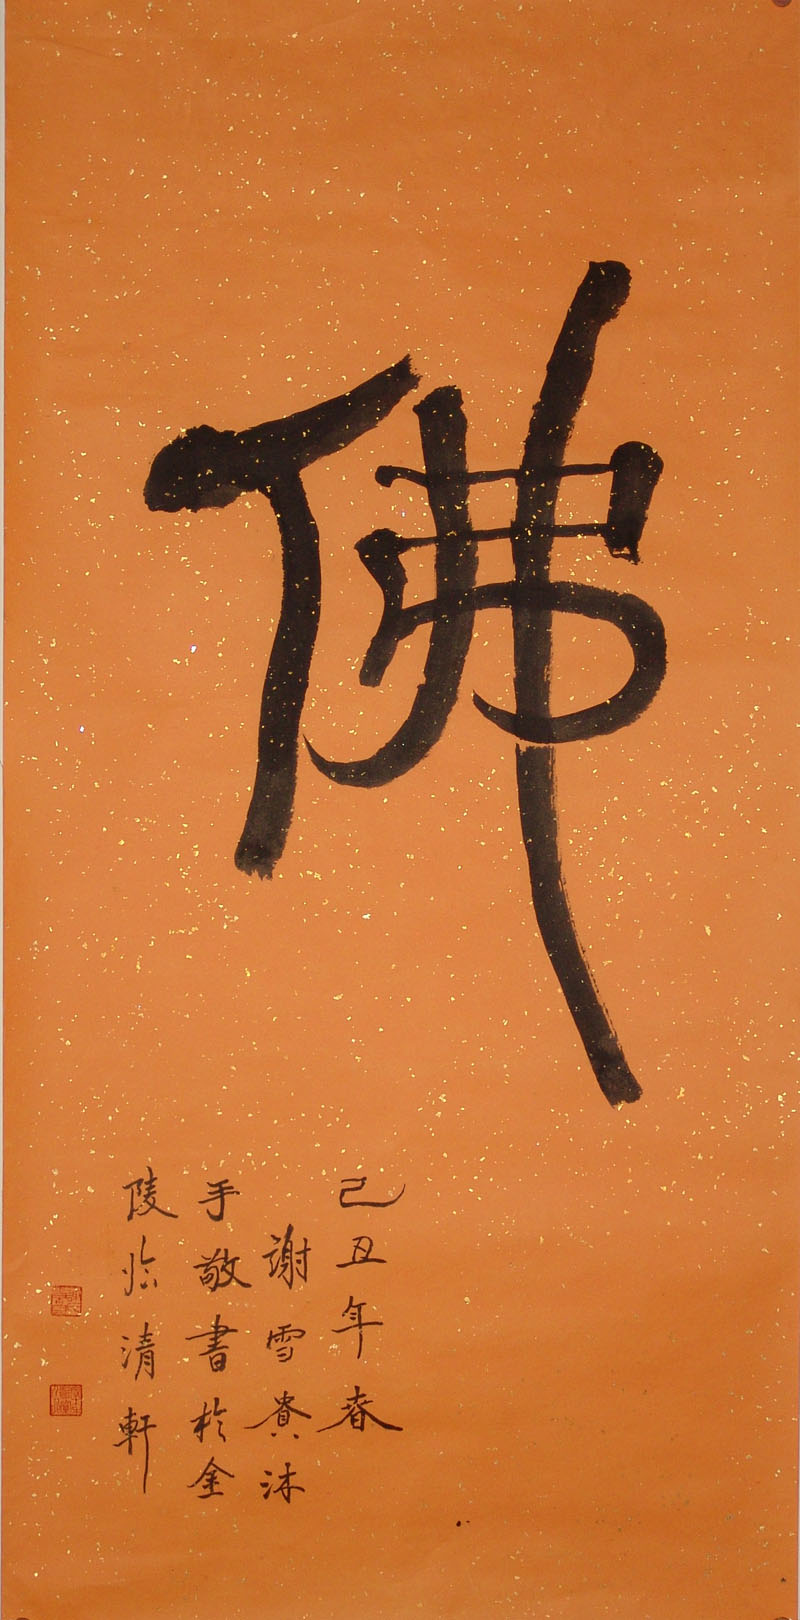 佛
己丑年春
謝雪貴沐
手敬書於金
陵臨清軒